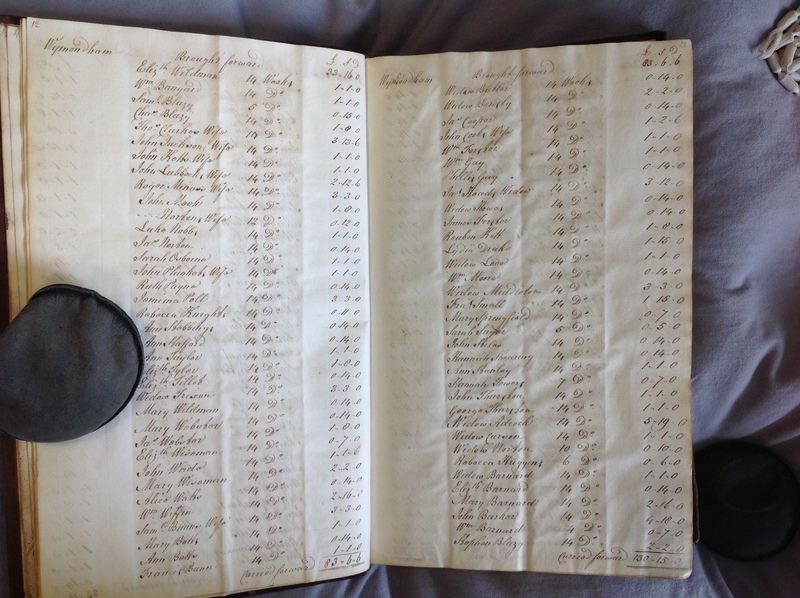 12
Wymondham
Brought forward
£ s d
33-16-0
Eliz.th Wildman 14 Weeks
Wm Banyard 14 Do 1-1-0
Saml Blazy 5 Do 1-1-0
Chas Blazy 14 Do 0-15-0
Thos Clarkes Wife 14 Do 1-8-0
John Jacksons Wife 14 Do 3-13-6
John Kett's Wife 14 Do 1-1-0
John Lubbocks Wife 14 Do 1-1-0
Roger Minns's Wife 14 Do 2-12-6
John Mook 14 Do 3-3-0
Nortons Wife 12 Do 1-8-0
Luke Nobbs 14 Do 0-12-0
Jas Norton 14 Do 1-1-0
Sarah Osborne 14 Do 0-14-0
John Plunkets Wife 14 Do 1-1-0
Ruth Payne 14 Do 1-1-0
Jemima Poll 14 Do 0-14-0
Rebecca Knights 14 Do 3-3-0
Ann 14 Do 0-14-0
Ann Stafford 14 Do 0-14-0
Ann Taylor 14 Do 1-1-0
Eliz.th Tyler 14 Do 1-8-0
Eliz.th Tillet 14 Do 0-14-0
Widow 14 Do 3-3-0
Mary Wildman 14 Do 0-14-0
Mary Webster 14 Do 0-14-0
Jas Webster 14 Do 1-8-0
Eliz.th Wiseman 14 Do 0-7-0
John 14 Do 1-1-6
Mary Wiseman 14 Do 2-2-0
Alice Watts 14 Do 0-14-0
Wm Wiffin 14 Do 2-16-0
Saml Bunns Wife 14 Do 3-3-0
Mary Bolt 14 Do 1-1-0
Ann Bolt 14 Do 0-14-0
Frances Bunn 14 Do 1-1-0
Carried forward 83-6-6
Wymondham
Brought forward
£ s d
83-6-6
Widow 14 Weeks 0-14-0
Widow 14 Do 2-2-0
Jas Cooper 14 Do 0-14-0
John Cooks Wife 14 Do 1-2-6
Wm Forster 14 Do 1-1-0
Wm Gay 14 Do 1-1-0
Phillis Gay 14 Do 0-14-0
Jas Heads Widow 14 Do 3-12-0
Widow Howes 14 Do 0-14-0
James Forster 14 Do 0-14-0
Reuben Kett 14 Do 1-8-0
Lydia Drake 14 Do 1-15-0
Widow Lane 14 Do 1-1-0
Wm Moore 14 Do 0-14-0
Widow Middleton 14 Do 3-3-0
Fras Small 14 Do 1-15-0
Mary Springfield 14 Do 0-7-0
Sarah 5 Do 0-5-0
John 14 Do 0-14-0
Hannah 14 Do 0-14-0
Ann 14 Do 1-1-0
Hannah 7 Do 0-7-0
John Thurston 14 Do 1-1-0
George Thurston 14 Do 1-1-0
Widow Adcock 14 Do 5-19-0
Widow Carson 14 Do 1-1-0
Widow Norton 10 Do 0-10-0
Rebecca Huggins 6 Do 0-6-0
Widow Barnard 14 Do 1-1-0
Eliz.th Barnard 14 Do 0-14-0
Mary Barnard 14 Do 2-16-0
John Barker 14 Do 4-18-0
Wm Barnard 14 Do 0-7-0
Stephen Blazy 14 Do 2-2-0
Carried forward 130-15-0